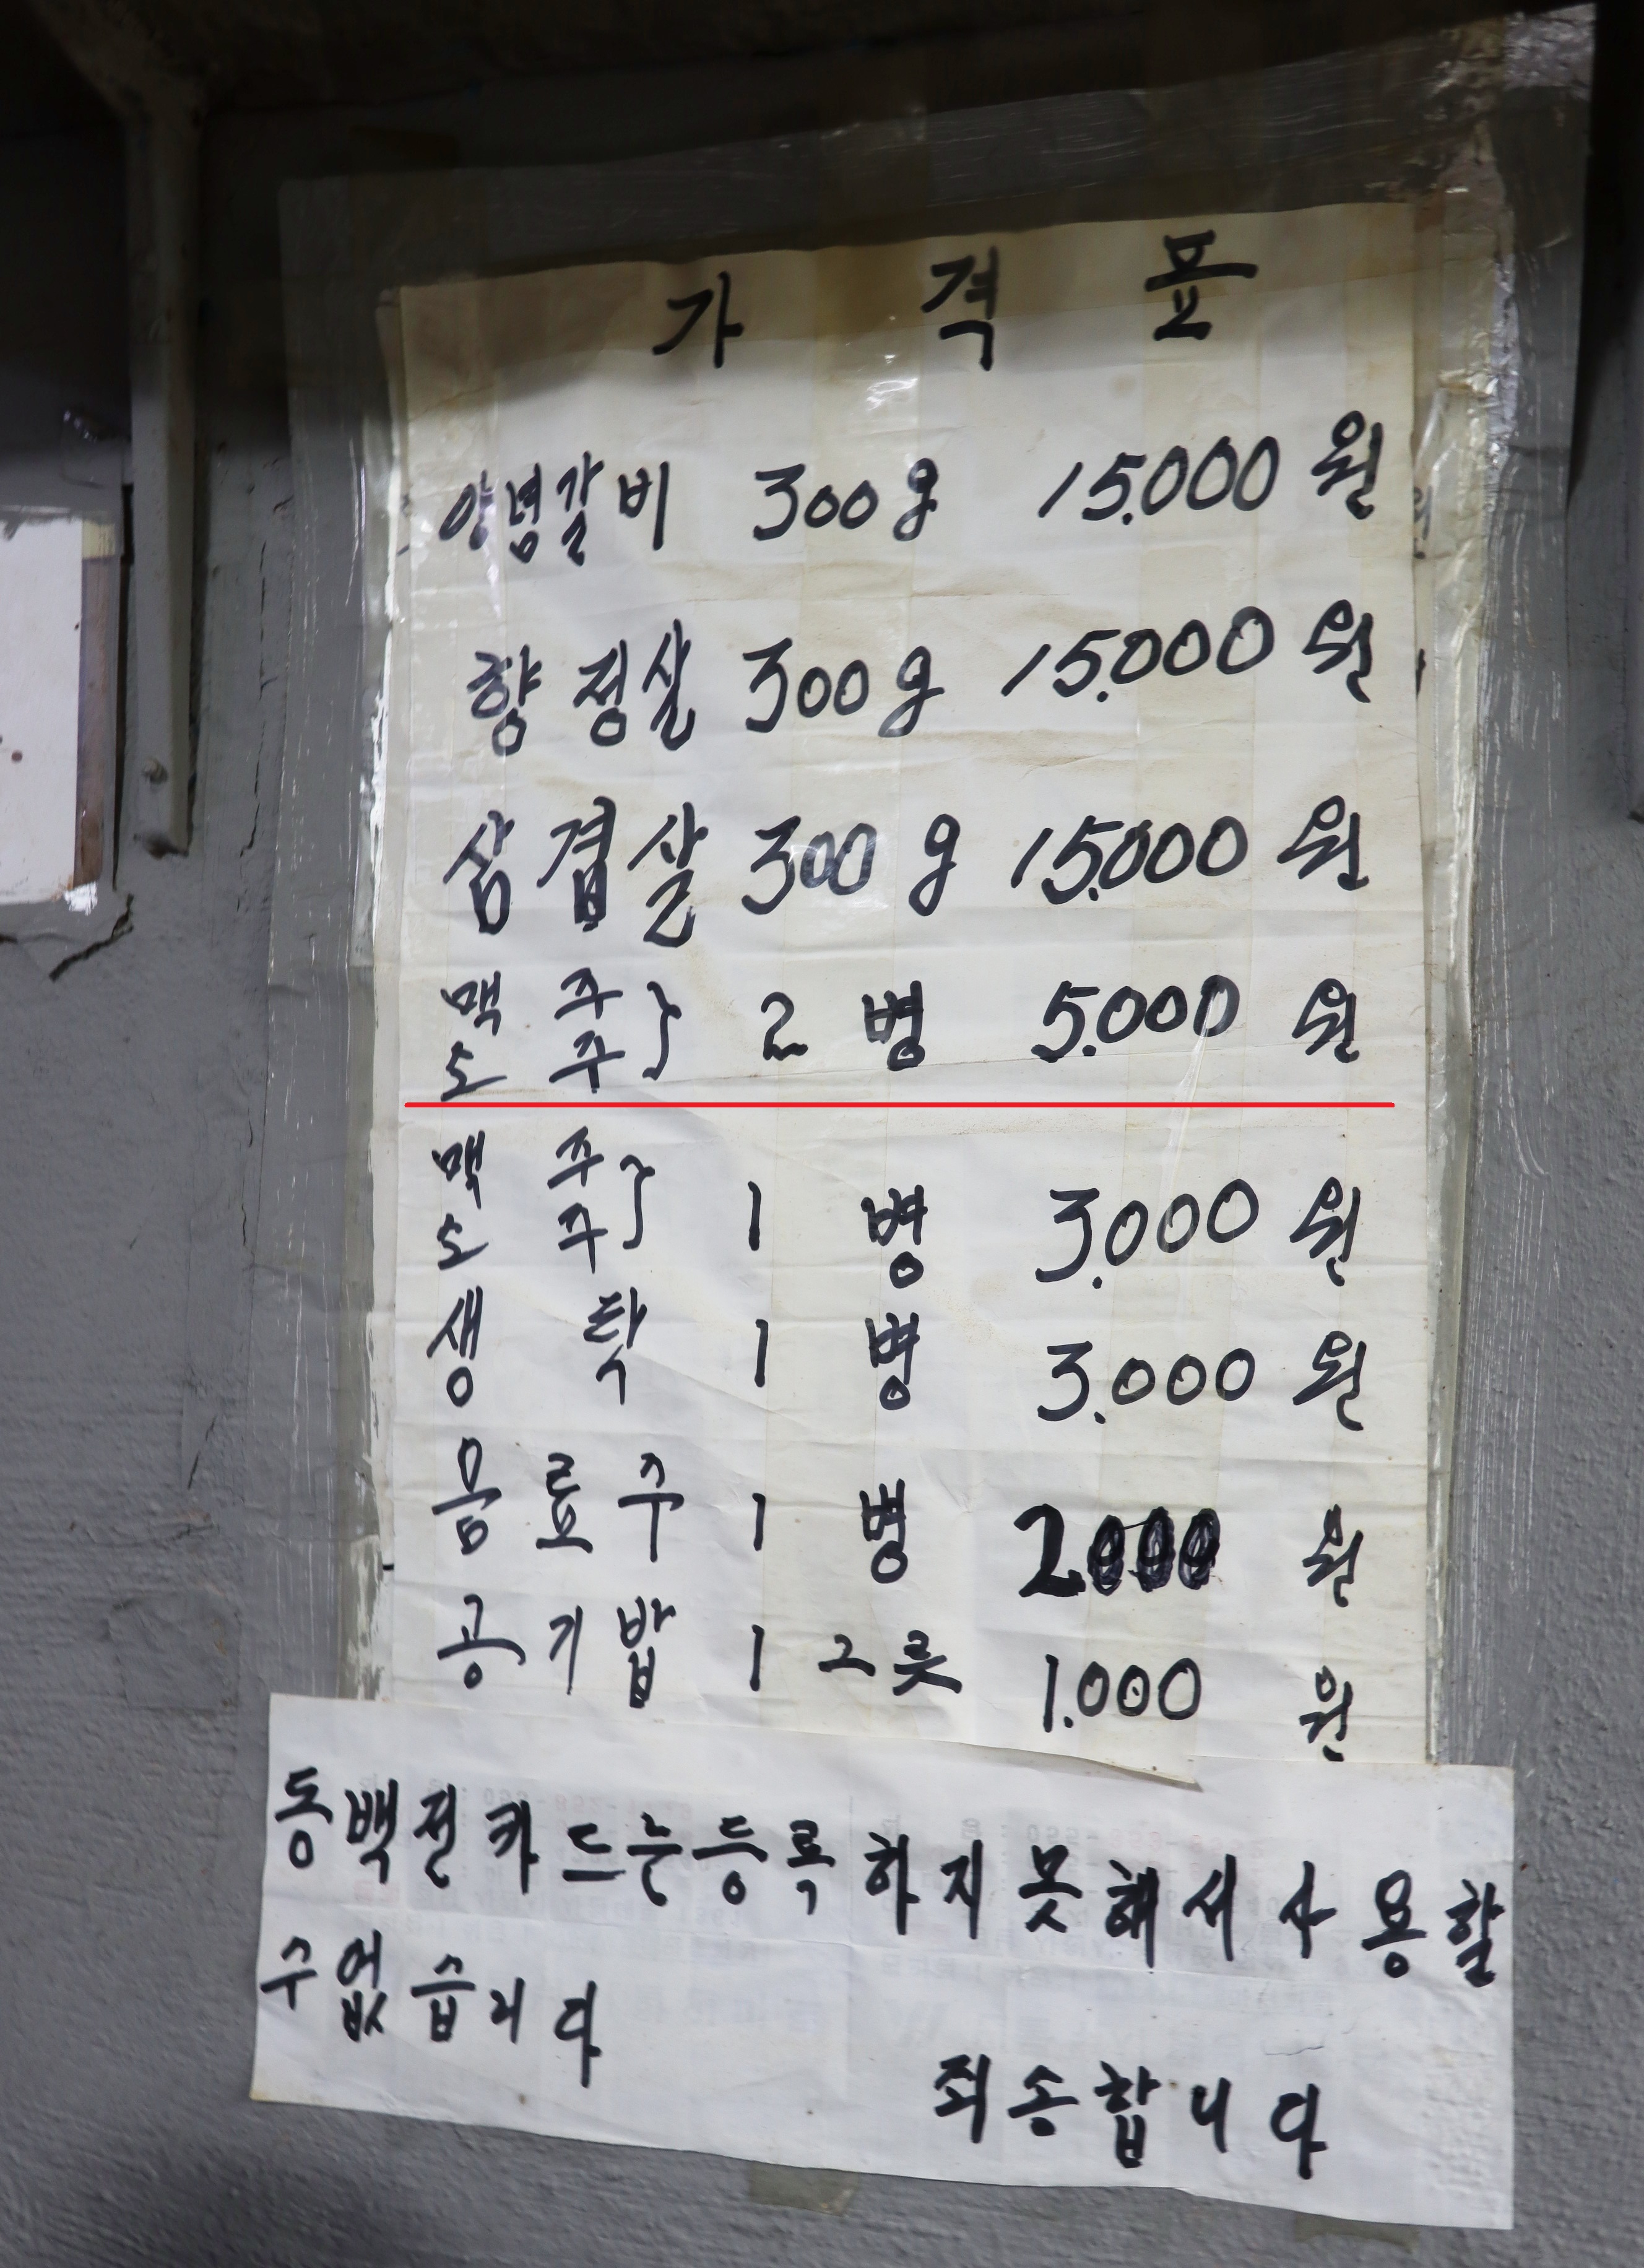 가 격 표
양념갈비 300g 15.000 원
항정살 300g 15.000 원
삼겹살 300g 15.000 원
맥 주 } 2 병 5.000 원
소 주
맥 주 } 1 병 3.000 원
소 주
생 탁 1 병 3.000 원
음료수 1 병 2000 원
공기밥 1 그릇 1.000 원
동백전카드는등록 하지못해서사용할
수없습니다
죄송합니다